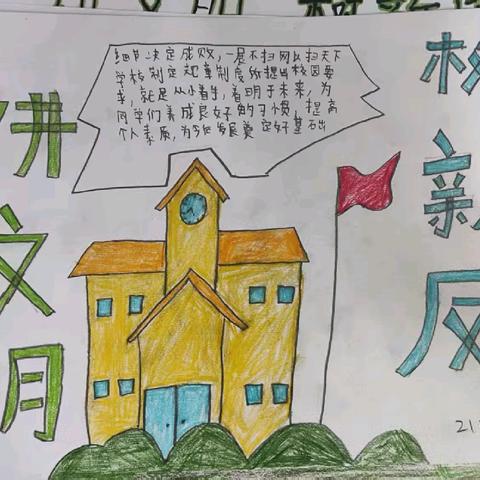 细节决定成败，一屋不扫何以扫天下
学校制定规章制度你提出校园要
求，就是从小着手，着明于未来，为
同学们养成良好的习惯，提高
个人素质，为今后发展奠定好基础
讲文明
树新风
21